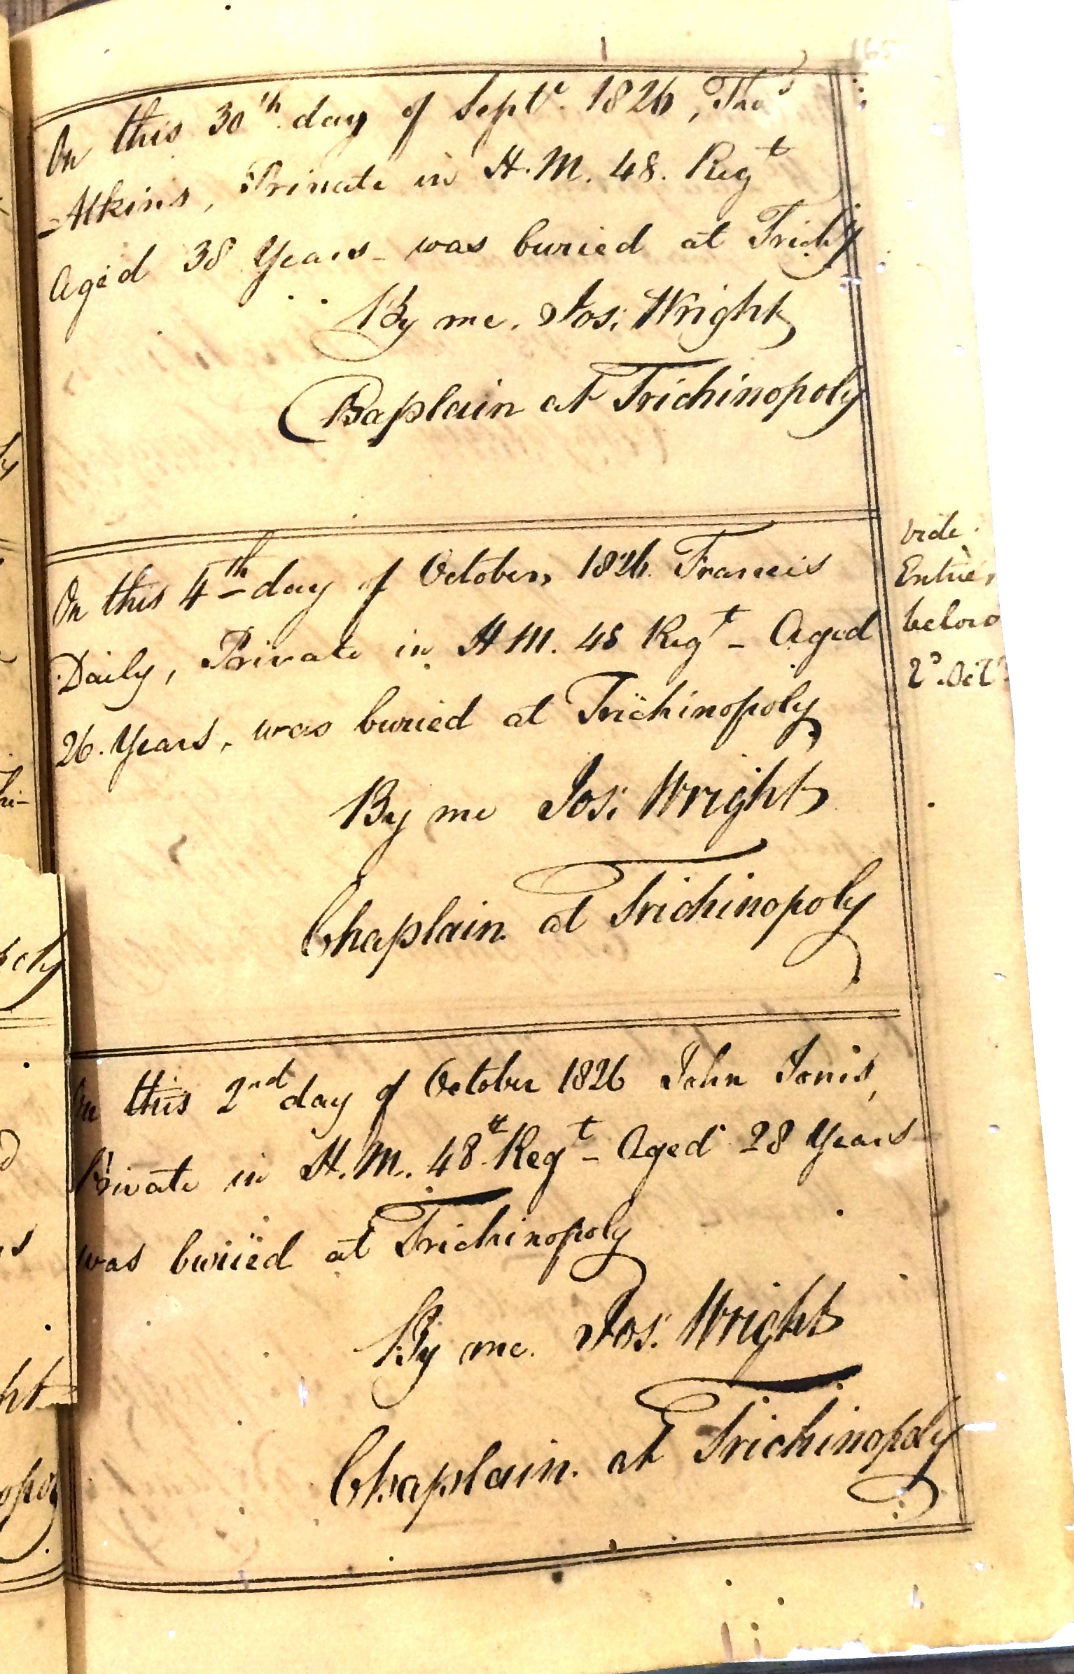 165
On this 30th day of Septr. 1826, Thos
Atkins, Private in H.M. 48. Regt
Aged 38 Years - was buried at Trichy
By me. Jos: Wright
Chaplain at Trichinopoly
On this 4th day of October, 1826. Francis
Daily, Private in H.M. 48 Regt - Aged
26. Years, was buried at Trichinopoly
By me Jos: Wright
Chaplain at Trichinopoly
vide
Entries
below
2d. Octr
On this 2nd day of October 1826 John Jonis,
Private in H.M. 48th Regt - Aged 28 Years
was buried at Trichinopoly
By me. Jos: Wright
Chaplain. at Trichinopoly